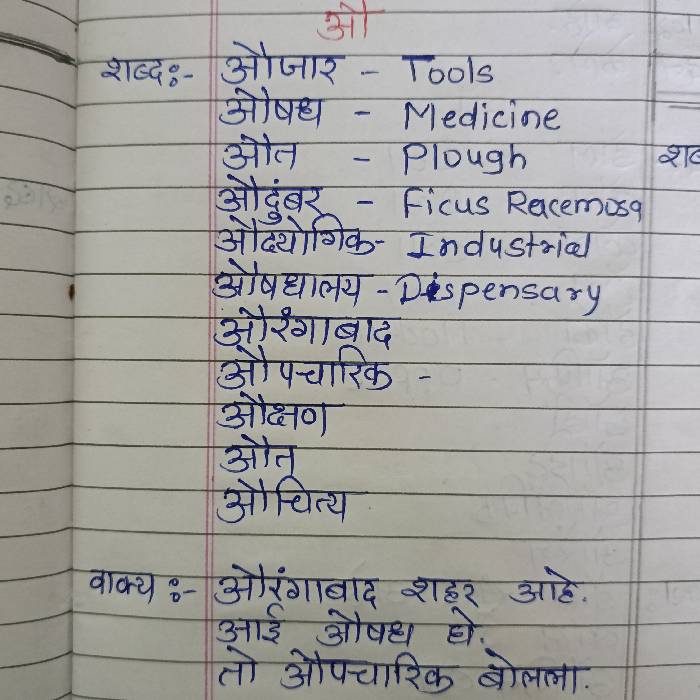 औ
शब्द:- औजार - Tools
औषध - Medicine
औत - Plough
औदुंबर - Ficus Racemosa
औदयोगिक - Industrial
औषधालय - Dispensary
औरंगाबाद
औपचारिक -
औक्षण
औत
औचित्य
वाक्य:- औरंगाबाद शहर आहे.
आई औषध घे.
तो औपचारिक बोलला.